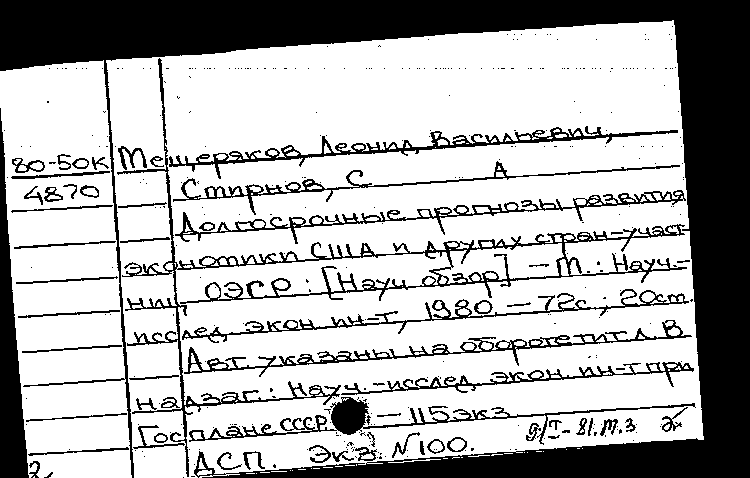 80-50К Мещеряков, Леонид Васильевич,
4870 Смирнов, С А
Долгосрочные прогнозы развития
экономики США и других стран-участ-
ниц ОЭСР : [Науч обзор] - М. : Науч.-
исслед. экон. ин-т, 1980. - 72с ; 20см.
Авт. указаны на обороте тит л. В
надзаг. : Науч.-исслед. экон. ин-т при
Госплане СССР - 115экз
ДСП. Экз. N100.